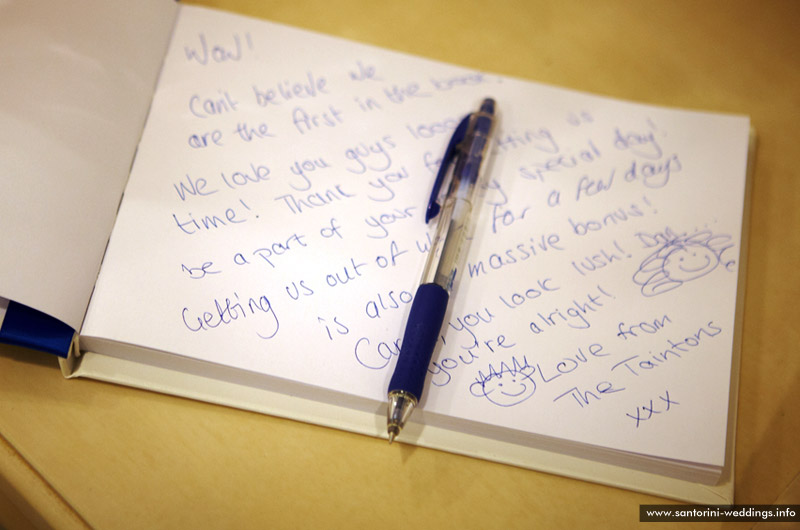 Wow!
Can't believe we
are the first in the book.
We love you guys
time! Thank you for letting us
be a part of your special day!
Getting us out of for a few days
is also massive bonus!
you look lush! Dan....
you're alright!
Love from
The Taintons
xxx
www.santorini-weddings.info